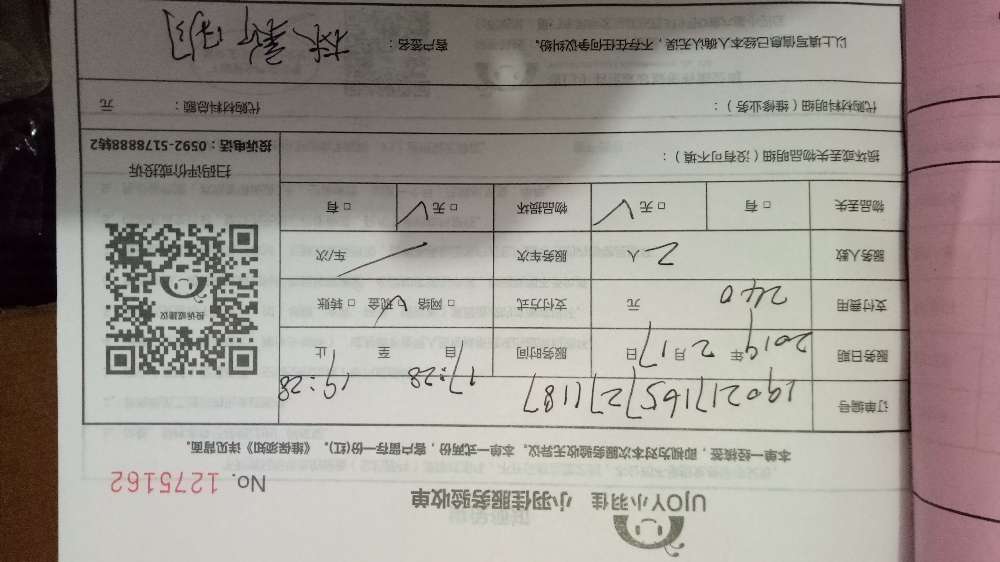 UJOY小羽佳 小羽佳服务验收单
No. 1275162
本单一经核签，即视为对本次服务验收无异议。本单一式两份，客户留存一份(红)。《维保须知》详见背面。
订单编号 19021716572711187
服务日期 2019 年 2 月 17 日 服务时间 17:28 自 至 19:28 止
支付费用 240 元 支付方式 □ 网络 □ 现金 ✓ □ 转账
服务人数 2 人 服务车次 / 车/次
物品丢失 □ 有 □ 无 ✓ 物品损坏 □ 无 ✓ □ 有
损坏或丢失物品明细（没有可不填）：
投诉或建议
扫码评价或投诉
投诉电话：0592-5178888转2
代购材料明细（维修业务）： 代购材料总额： 元
以上填写信息已经本人确认无误，不存在任何争议纠纷。 客户签名：